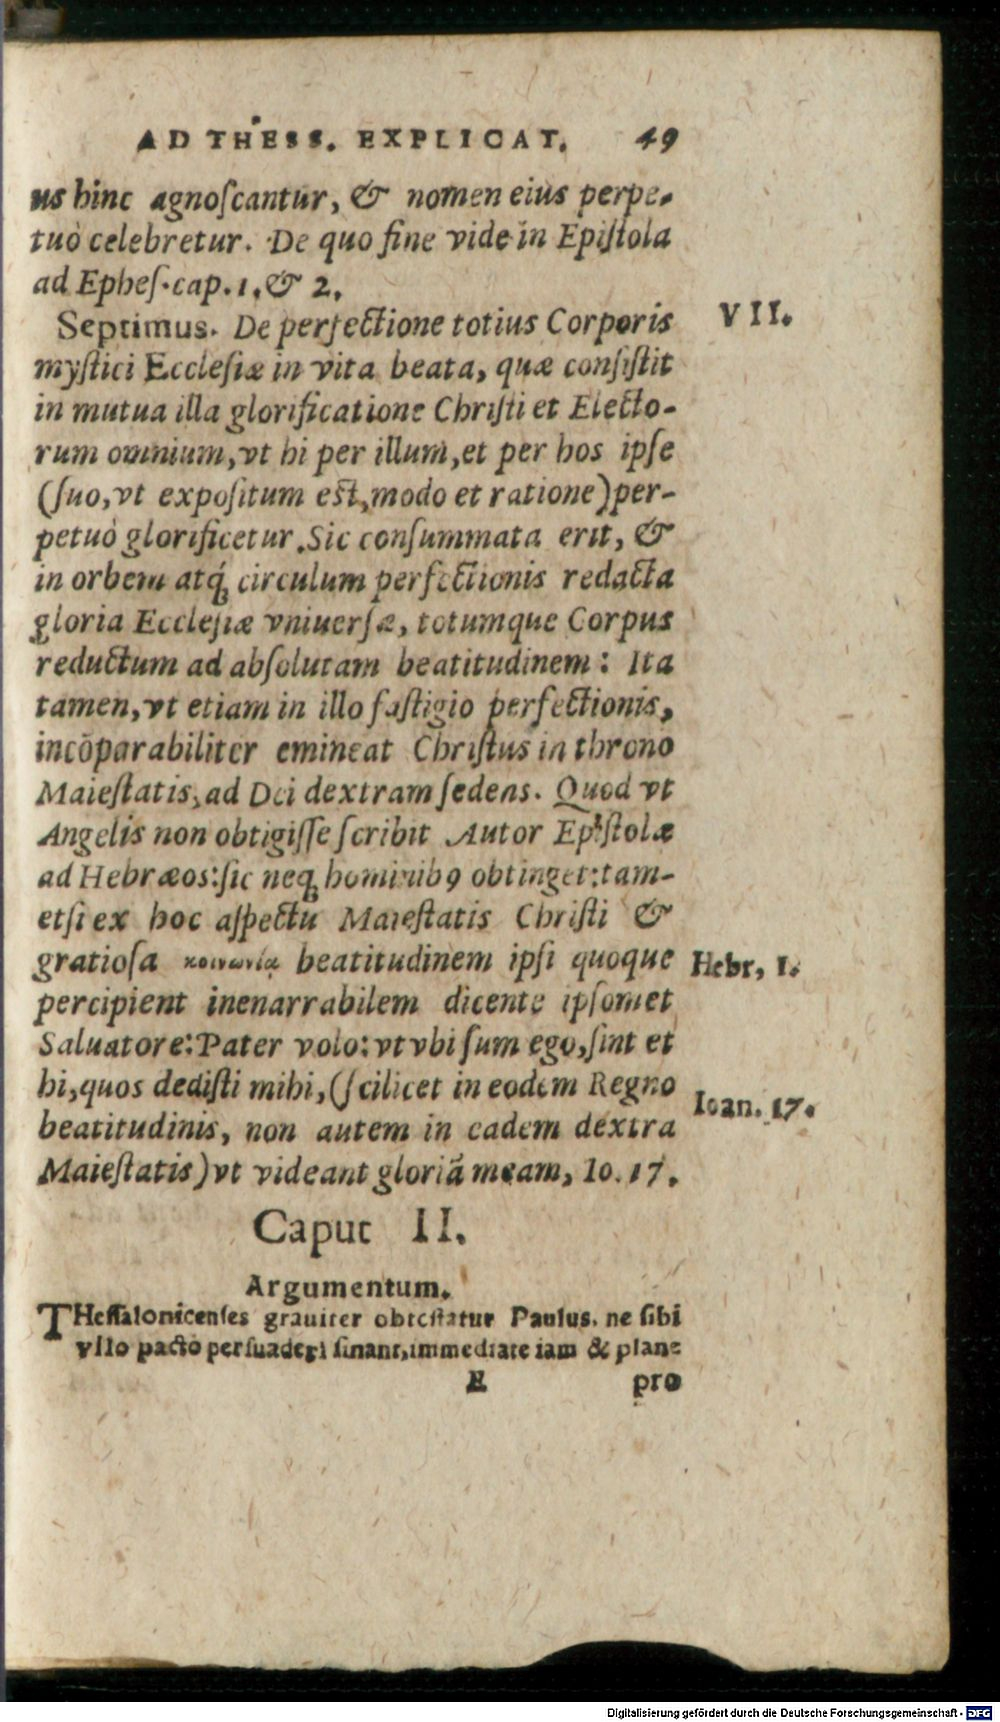 AD THESS. EXPLICAT. 49
us hinc agnoſcantur, & nomen eius perpe-
tuò celebretur. De quo fine vide in Epiſtola
ad Epheſ. cap. 1. & 2.
Septimus. De perfectione totius Corporis
VII.
myſtici Eccleſiæ in vita beata, quæ conſiſtit
in mutua illa glorificatione Chriſti et Electo-
rum omnium, vt hi per illum, et per hos ipſe
(ſuo, vt expoſitum eſt, modo et ratione) per-
petuò glorificetur. Sic conſummata erit, &
in orbem atq́; circulum perfectionis redacta
gloria Eccleſiæ vniuerſæ, totumque Corpus
reductum ad abſolutam beatitudinem: Ita
tamen, vt etiam in illo faſtigio perfectionis,
incōparabiliter emineat Chriſtus in throno
Maieſtatis, ad Dei dextram ſedens. Quod vt
Angelis non obtigiſſe ſcribit Autor Epiſtolæ
ad Hebræos: ſic neq; hominibꝰ obtinget: tam-
etſi ex hoc aſpectu Maieſtatis Chriſti &
gratioſa κοινωνίᾳ beatitudinem ipſi quoque
Hebr, 1.
percipient inenarrabilem dicente ipſomet
Saluatore: Pater volo: vt vbi ſum ego, ſint et
hi, quos dediſti mihi, (ſcilicet in eodem Regno
Ioan. 17.
beatitudinis, non autem in eadem dextra
Maieſtatis) vt videant gloriā meam, Io. 17.
Caput II.
Argumentum.
THeſſalonicenſes grauiter obteſtatur Paulus. ne ſibi
vllo pacto perſuaderi ſinant, immediate iam & plane
E pro
Digitalisierung gefördert durch die Deutsche Forschungsgemeinschaft - DFG